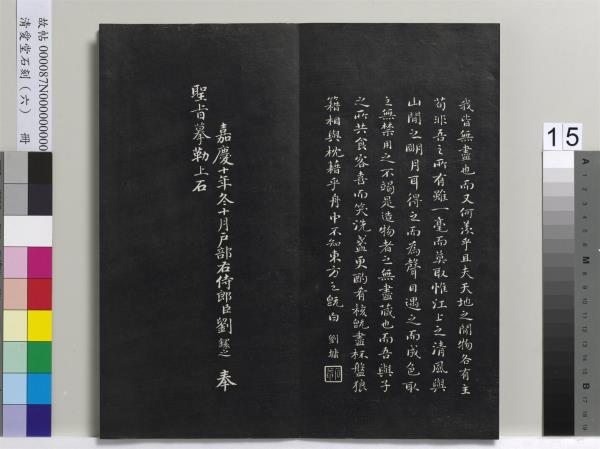 我皆無盡也而又何羨乎且夫天地之間物各有主
苟非吾之所有雖一毫而莫取惟江上之清風與
山間之明月耳得之而為聲目遇之而成色取
之無禁用之不竭是造物者之無盡藏也而吾與子
之所共食客喜而笑洗盞更酌肴核既盡杯盤狼
籍相與枕藉乎舟中不知東方之既白 劉墉
嘉慶十年冬十月戶部右侍郎臣劉鐶之 奉
聖旨摹勒上石
故帖 000087N000000000
清愛堂石刻(六) 冊
15
A
1
2
3
4
5
6
M
8
9
10
11
12
13
14
15
B
17
18
19